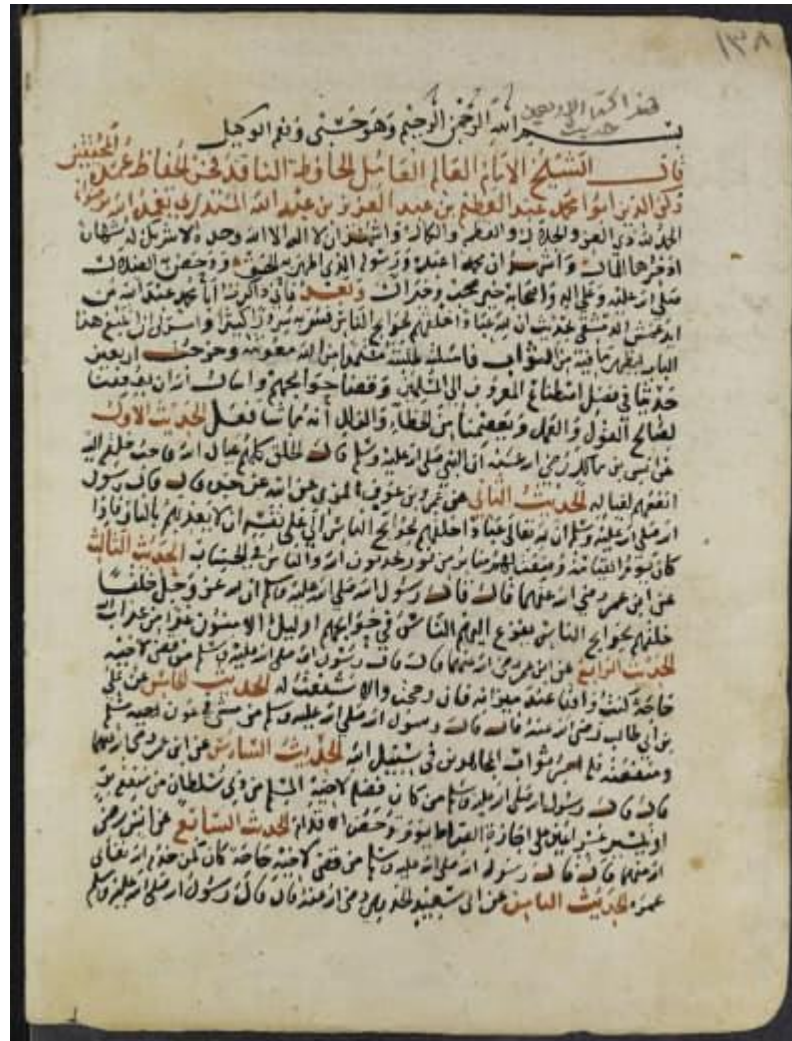 ١٣٨
هذا كتاب الاربعين
حديث
بسم الله الرحمن الرحيم وهو حسبي ونعم الوكيل
قال الشيخ الامام العالم العامل الحافظ الناقد فخر الحفاظ عمدة المحققين
زكي الدين ابوا محمد عبد العظيم بن عبد القوي بن عبد الله المنذري تغمده الله برضوانه
الحمد لله ذي العز والجلال والعظم والكمال واشهد ان لا اله الا الله وحده لا شريك له شهادة
وأشهد ان محمدا عبده ورسوله الذي
صلى الله عليه وعلى اله واصحابه خير صحب وخير ال وبعد فاني ذاكرت أبا محمد عبد الله بن
الدمشقي بحديث ان لله عبادا خلقهم لحوائج الناس كثيرا
من الثواب فاسلته طلبته مستمدا من الله معونته وخرجت اربعين
حديثا في فضل اصطناع المعروف الى المسلمين وقضا حوائجهم واسال الله ان يوفقنا
لصالح القول والعمل ويعصمنا من الخطاء والزلل أنه ما شا فعل الحديث الاول
عن انس بن مالك رضي الله عنه ان النبي صلى الله عليه وسلم قال الخلق كلهم عيال الله فاحب خلقه اليه
انفعهم لعياله الحديث الثاني عن بن عوف المزني عن ابيه عن جده قال قال رسول
الله صلى الله عليه وسلم ان لله تعالى عبادا خلقهم لحوائج الناس الى على نفسه ان لا يعذبهم بالنار فاذا
كان يوم القيامة وضعت لهم منابر من نور يحدثون الله والناس في الحساب الحديث الثالث
عن ابن عمر رضي الله عنهما قال قال رسول الله صلى الله عليه وسلم ان لله عز وجل خلقا
خلقهم لحوائج الناس يفزع اليهم الناس في حوائجهم اوليك الامنون غدا من عذاب الله
الحديث الرابع عن ابن عمر رضي الله عنهما قال قال رسول الله صلى الله عليه وسلم من قضى لاخيه
حاجة كنت واقفا عند ميزانه فان رجح والا شفعت له الحديث الخامس عن علي
بن ابي طالب رضي الله عنه قال قال رسول الله صلى الله عليه وسلم من مشى في عون اخيه
ومنفعته فله ثواب المجاهدين في سبيل الله الحديث السادس عن ابن عمر رضي الله عنهما
قال قال رسول الله صلى الله عليه وسلم من كان وصله لاخيه المسلم من ذي سلطان
على اجازة الصراط يوم دحض الاقدام الحديث السابع عن انس رضي
الله عنهما قال قال رسول الله صلى الله عليه وسلم من قضى لاخيه حاجة كان كمن خدم الله تعالى
عمره الحديث الثامن عن ابي سعيد الخدري رضي الله عنه قال قال رسول الله صلى الله عليه وسلم